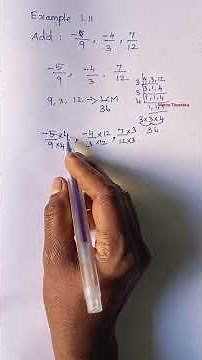 Example 1.11
Add: -5/9, -4/3, 7/12
-5/9, -4/3, 7/12
9, 3, 12 → LCM
36
3 | 9, 3, 12
3 | 3, 1, 4
4 | 1, 1, 4
1, 1, 1
3 × 3 × 4
36
-5 × 4/9 × 4, -4 × 12/3 × 12, 7 × 3/12 × 3